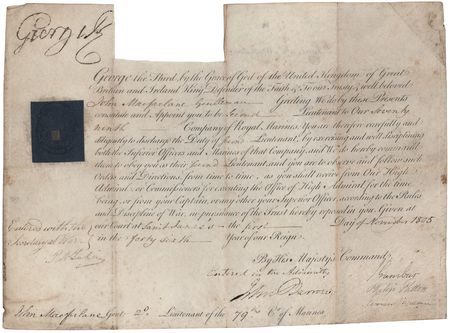 George R
George the Third, by the Grace of God of the United Kingdom of Great
Britain and Ireland King, Defender of the Faith, &c. To our Trusty & well beloved
John Macfarlane Gentleman Greeting We do by these Presents
constitute and Appoint you to be Second Lieutenant to Our Seventy
ninth Company of Royal Marines. You are therefore carefully and
diligently to discharge the Duty of Second Lieutenant, by exercising and well disciplining
both the Inferior Officers and Marines of that Company, and We do hereby command
them to obey you as their Second Lieutenant and you are to observe and follow such
Orders and Directions from time to time, as you shall receive from Our High
Admiral, or Commissioners for executing the Office of High Admiral for the time
being, or from your Captain, or any other your Superior Officer, according to the Rules
and Discipline of War, in pursuance of the Trust hereby reposed in you. Given at
our Court at Saint James's the first Day of November 1805
in the forty sixth Year of our Reign.
Entered with the
Secretary at War
By His Majesty's Command,
Entered in the Admiralty
John Barrow
Gambier
John Macfarlane Gent 2d. Lieutenant of the 79th Co. of Marines